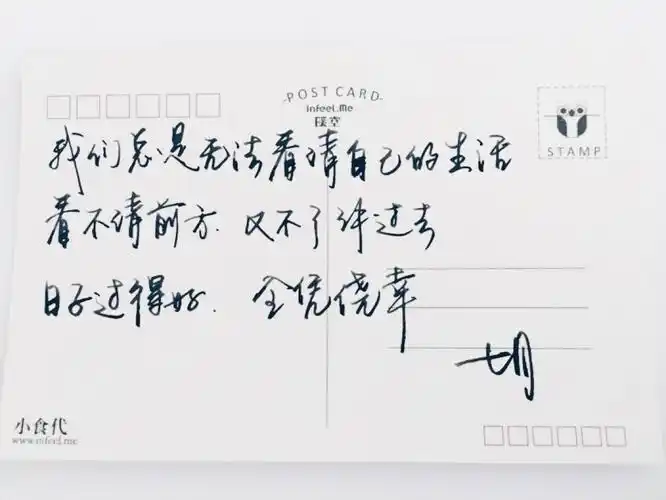 POST CARD
infeel.Me
STAMP
我们总是无法看清自己的生活
看不清前方.又不了过去
日子过得好.全凭侥幸
七月
小食代
www.infeel.me